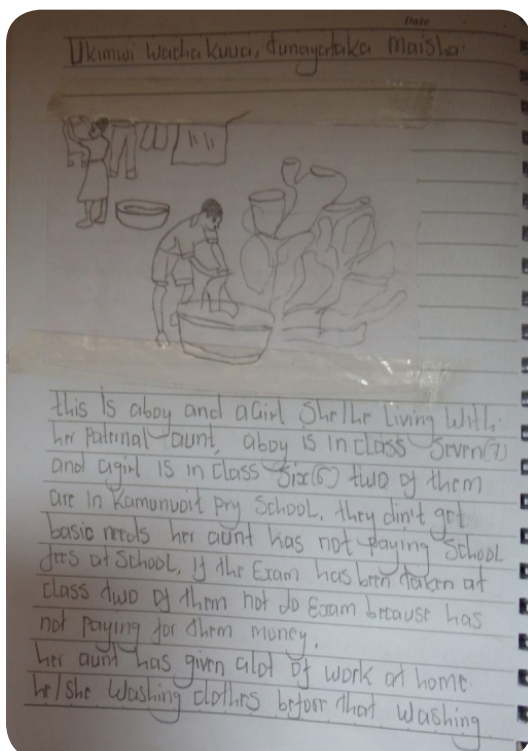 Date
Ukimwi wacha kuua, tunayataka maisha.
this is aboy and aGirl She/he living with
her paternal aunt, aboy is in class Seven(7)
and agirl is in class Six(6) two of them
are in Kamunuoit pry School. they din't get
basic needs her aunt has not paying School
fees at School, if the Exam has been taken at
class two of them not do Exam because has
not paying for them money.
her aunt has given alot of work at home.
he/she washing clothes before that washing